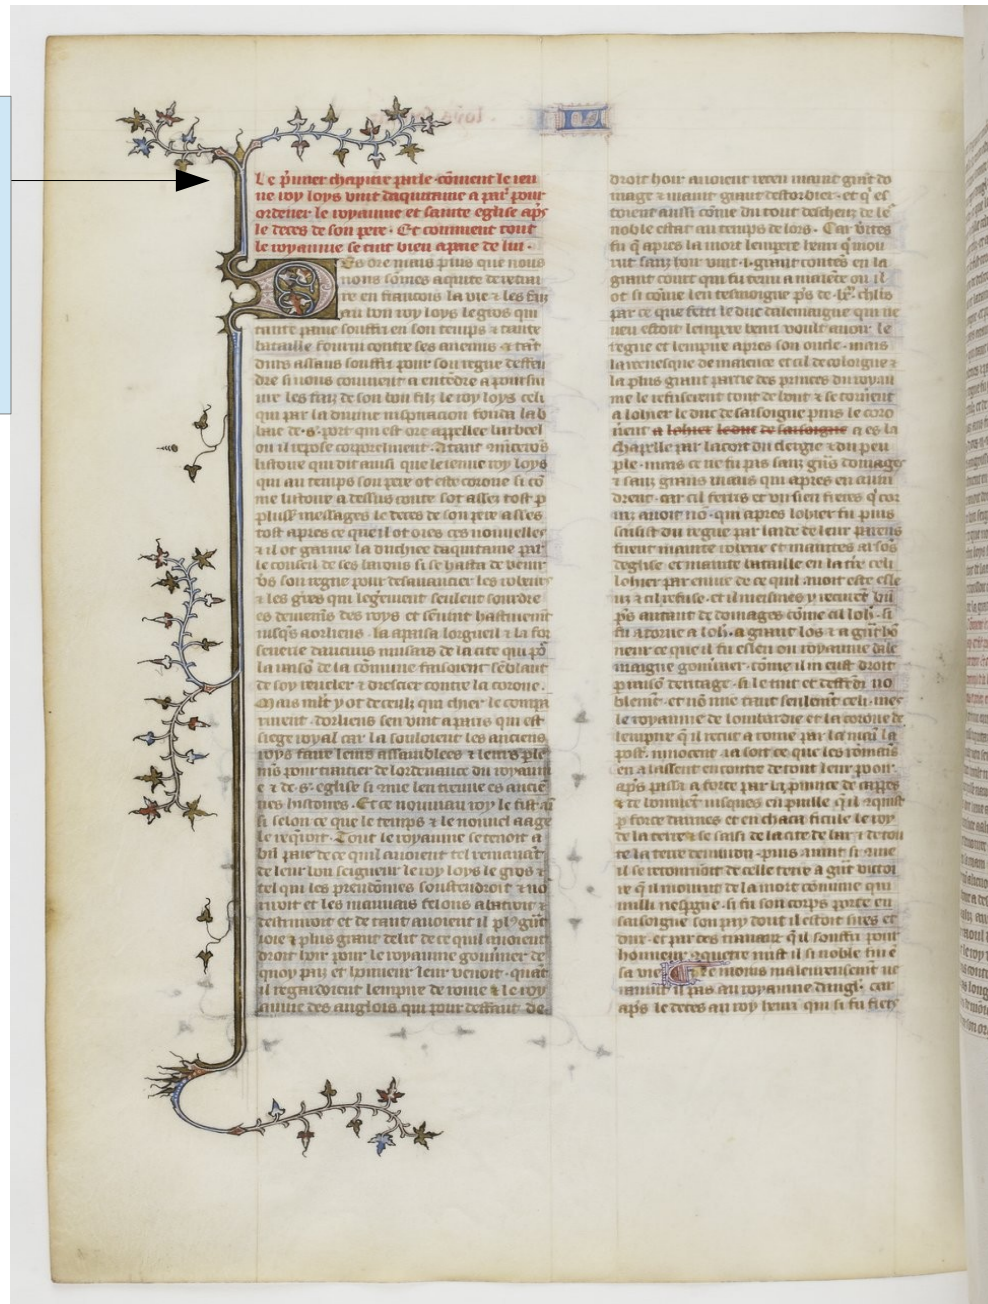 L
Le p̃mier chapitre parle coment le ieu
ne roy loys vint daquitaine a par̃ pour
ordener le royaume et sainte eglise ap̃s
le deces de son pere · Et comment tout
le royaume se tint bien apaie de lui ·
Es ore mais plus que nous
nous sõmes aquite de retrai
re en francois la vie ⁊ les faiz
au bon roy loys le gros qui
tante paine souffri en son temps ⁊ tante
bataille fourni contre ses anemis ⁊ tãt
durs assaus souffri pour son regne deffen
dre si nous couuient a entẽdre a poursiu
ure les faiz de son bon filz le roy loys celi
qui par la diuine inspiracion fonda lab
baie de · s · port qui est ore appellee barbeel
ou il repose corporelment ·
histoire qui dit ainsi que le ieune roy loys
qui au temps son pere ot este corone si cõ
me listoire a dessus conte sot assez tost p
plusẽ messages le deces de son pere asses
tost apres ce que il ot oies ces nouuelles
⁊ il ot garnie la duchiee daquitaine par
le conseil de ses barons si se hasta de venir
v̾s son regne pour desauancier les roberies
⁊ les gr̃es qui legierement seulent sourdre
es des roys et sen vint hastiuemẽt
iusq̃s a orliens · la apaisa lorgueil ⁊ la for
senerie daucuns musars de la cite qui po᷑
la raisõ de la cõmune faisoient sẽblant
de soy reueler ⁊ drescier contre la corone ·
Mais ml̃t y ot de ceulz qui chier le compa
rurent · dorliens sen vint a paris qui est
siege royal car la souloient les anciens
roys faire leurs assamblees ⁊ leurs ple
nis pour traitier de lordenance du royaum
e ⁊ de · s · eglise si cõme len treuue es ancie
nes histoires · Et ce nouuiau roy le fist au
si selon ce que le temps ⁊ le nouuel aage
le requort · Tout le royaume se tenoit a
biẽ paie de ce quil auoient tel remanãt
de leur bon seigneur le roy loys le gros ⁊
tel qui les preudõmes soustendroit ⁊ no
rriroit et les mauuais felons abatroit ⁊
destruiroit et de tant auoient il pl᷒ grãt
ioie ⁊ plus grant delit de ce quil auoient
droit hoir pour le royaume gouu̾ner de
quoy paiz et honneur leur venoit · quãt
il regardoient lempire de rome ⁊ le roy
aume des anglois qui pour deffaut de
droit hoir auoient receu maint grãt do
mage ⁊ maint grant destorbier · et q̃ es
toient aussi cõme du tout descheuz de le᷑
noble estat au temps de lors · Car v̾ites
fu q̃ apres la mort lempere henri q̃ mou
rut sanz hoir vint · i · granz contẽs en la
grant court qui fu tenu a maiẽce ou il
ot si cõme len tesmoigne
par ce que ferri le duc dalemaigne qui ne
ueu estoit lempere henri voult auoir le
regne et lempire apres son oncle · mais
larceuesque de maience et cil de coloigne ⁊
la plus grant partie des princes du royau
me le refuserent tout de bout ⁊ se tornẽent
a lohier le duc de saisoigne puis le coro
nerent a lohier le duc de saisoigne a es la
chapelle par lacort du clergie ⁊ du peu
ple · mais ce ne fu pas sanz grãs domages
⁊ sanz granz maus qui apres en auin
drent · car cil ferris et vn sien freres q̃ cor
rat auoit nõ · qui apres lohier fu puis
saisist du regne par laide de leur parens
firent mainte roberie et maintes arsõs
deglise et mainte bataille en la tr̃e celi
lohier par enuie de ce quil auoit este esle
u ⁊ cil refuse · et il meismes y recurẽt biẽ
p̃s autant de domages cõme cil loh̃ · si
fu atorne a loh̃ · a grant los ⁊ a grãt hõ
neur ce que il fu esleu ou royaume dale
maigne gouu̾ner · cõme il ni eust droit
p raisõ deritage · si le tint et deffẽdi no
blemẽt · et nõ mie tant seulemẽt celi · mes
le royaume de lombardie et la corone de
lempire q̃ il recut a rome par la main la
post̃ · innocent · ia soit ce que les romains
en alassent encontre de tout leur pooir ·
ap̃s passa a force par la prince de capes
⁊ de bonivẽt iusques en puille q̃ il ⁊quist
p force darmes et en chaca sicille le roy
de la terre ⁊ se saisi de la cite de bar ⁊ de tou
te la terre denuiron · puis auint si cõme
il se retornoit de celle terre a grãt victoi
re q̃ il morut de la mort cõmune qui
nulli nespgne · si fu son corps porte en
saisoigne son pay dont il estoit sires et
duc · et par ces trauaux q̃ il souffri pour
honneur ⁊querre mist il si noble fin e
sa vie · Ne moins maleureusemẽt ne
auint il pas au royaume dangl̃ · car
ap̃s le deces au roy henri qui si fu fiers